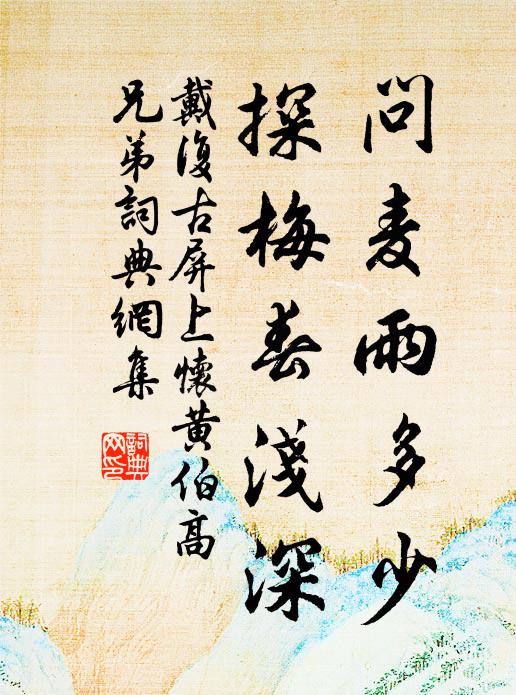 問麦雨多少
探梅春淺深
戴復古屏上懷黄伯高
兄弟詞典網集
詞典网印